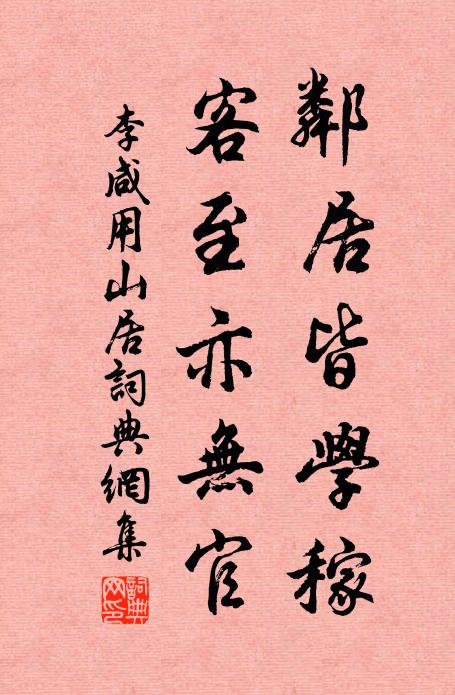 鄰居皆學稼
客至亦無官
李咸用山居詞典網集
詞典网印